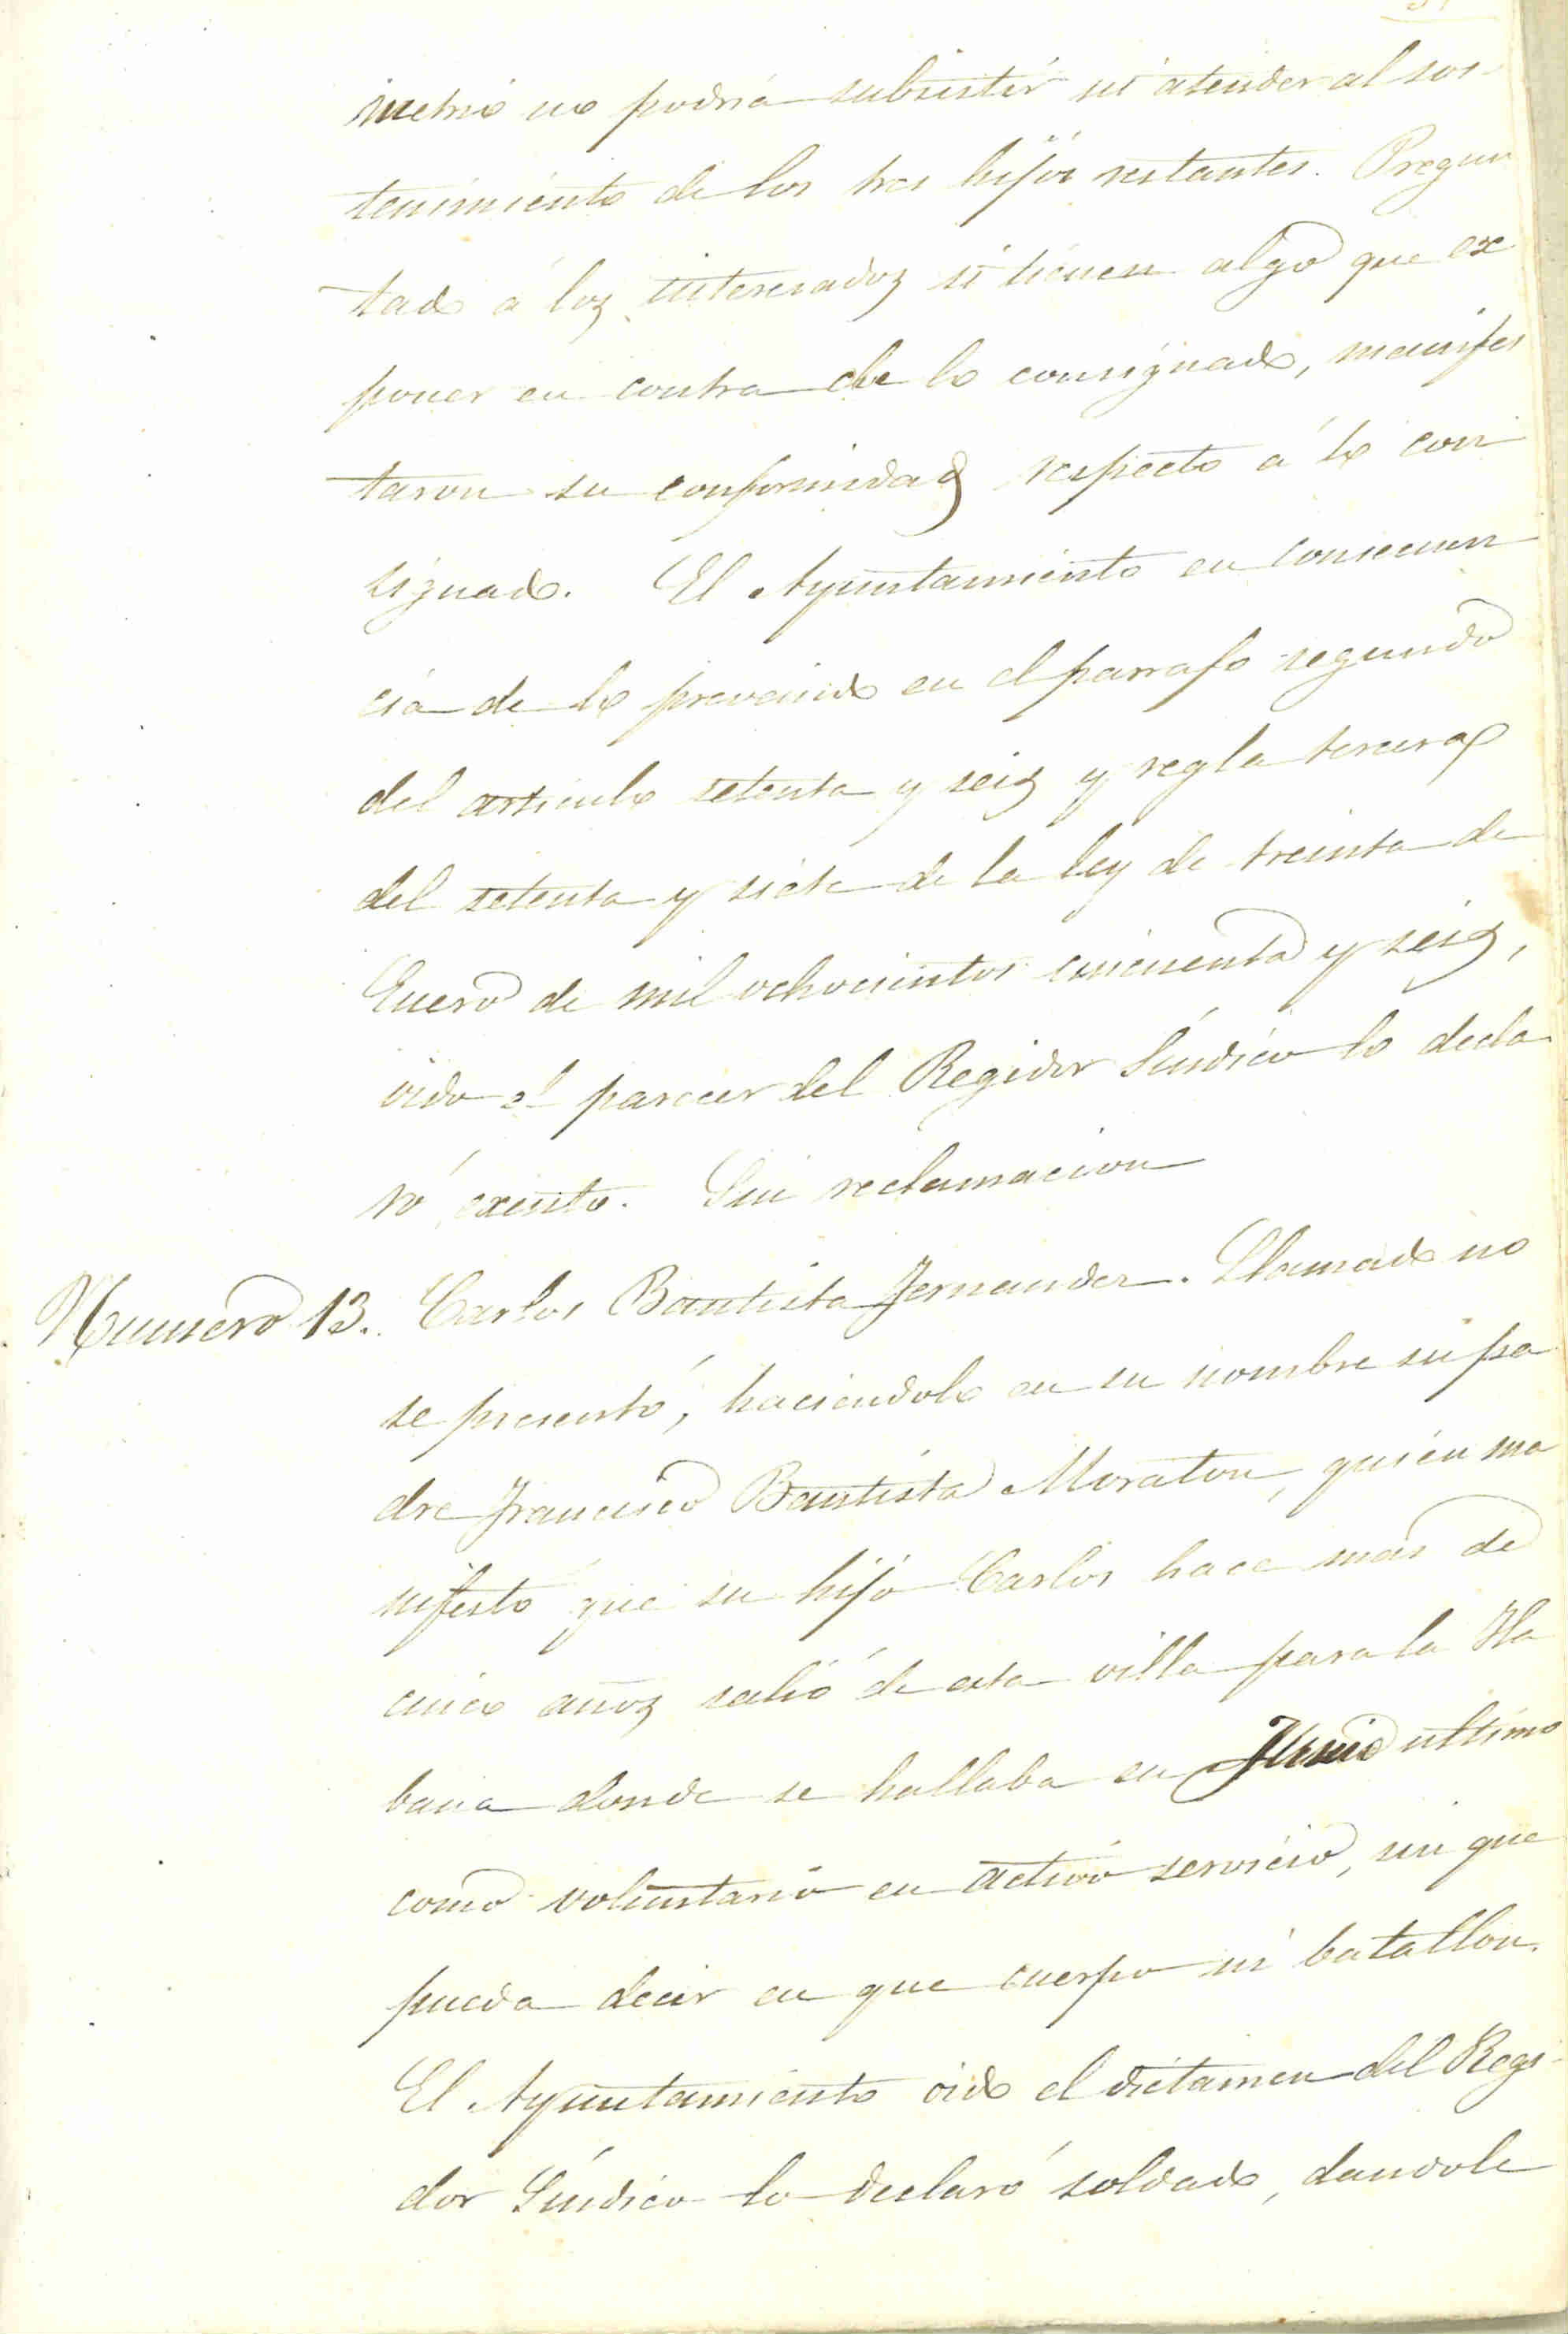 metrio no podria subsistir ni atender al sos-
tenimiento de los tres hijos restantes. Pregun
tado á los interesados si tienen algo que ex
poner en contra de lo consignado, manifes
taron su conformidad respecto á lo con
signado. El Ayuntamiento en consecuen
cia de lo prevenido en el parrafo segundo
del articulo setenta y seis y regla tercera
del setenta y siete de la ley de treinta de
Enero de mil ochocientos cincuenta y seis,
oido el parecer del Regidor Síndico lo decla
ró exento. Sin reclamacion
Numero 13. Carlos Bautista Fernandez. Llamado no
se presentó, haciendolo en su nombre su pa
dre Francisco Bautista Moraton, quien ma
nifestó que su hijo Carlos hace mas de
cinco años salió de esta villa para la Ha
bana donde se hallaba en Junio ultimo
como voluntario en activo servicio, sin que
pueda decir en que cuerpo ni batallon.
El Ayuntamiento oido el dictamen del Regi-
dor Síndico lo declaró soldado, dandole